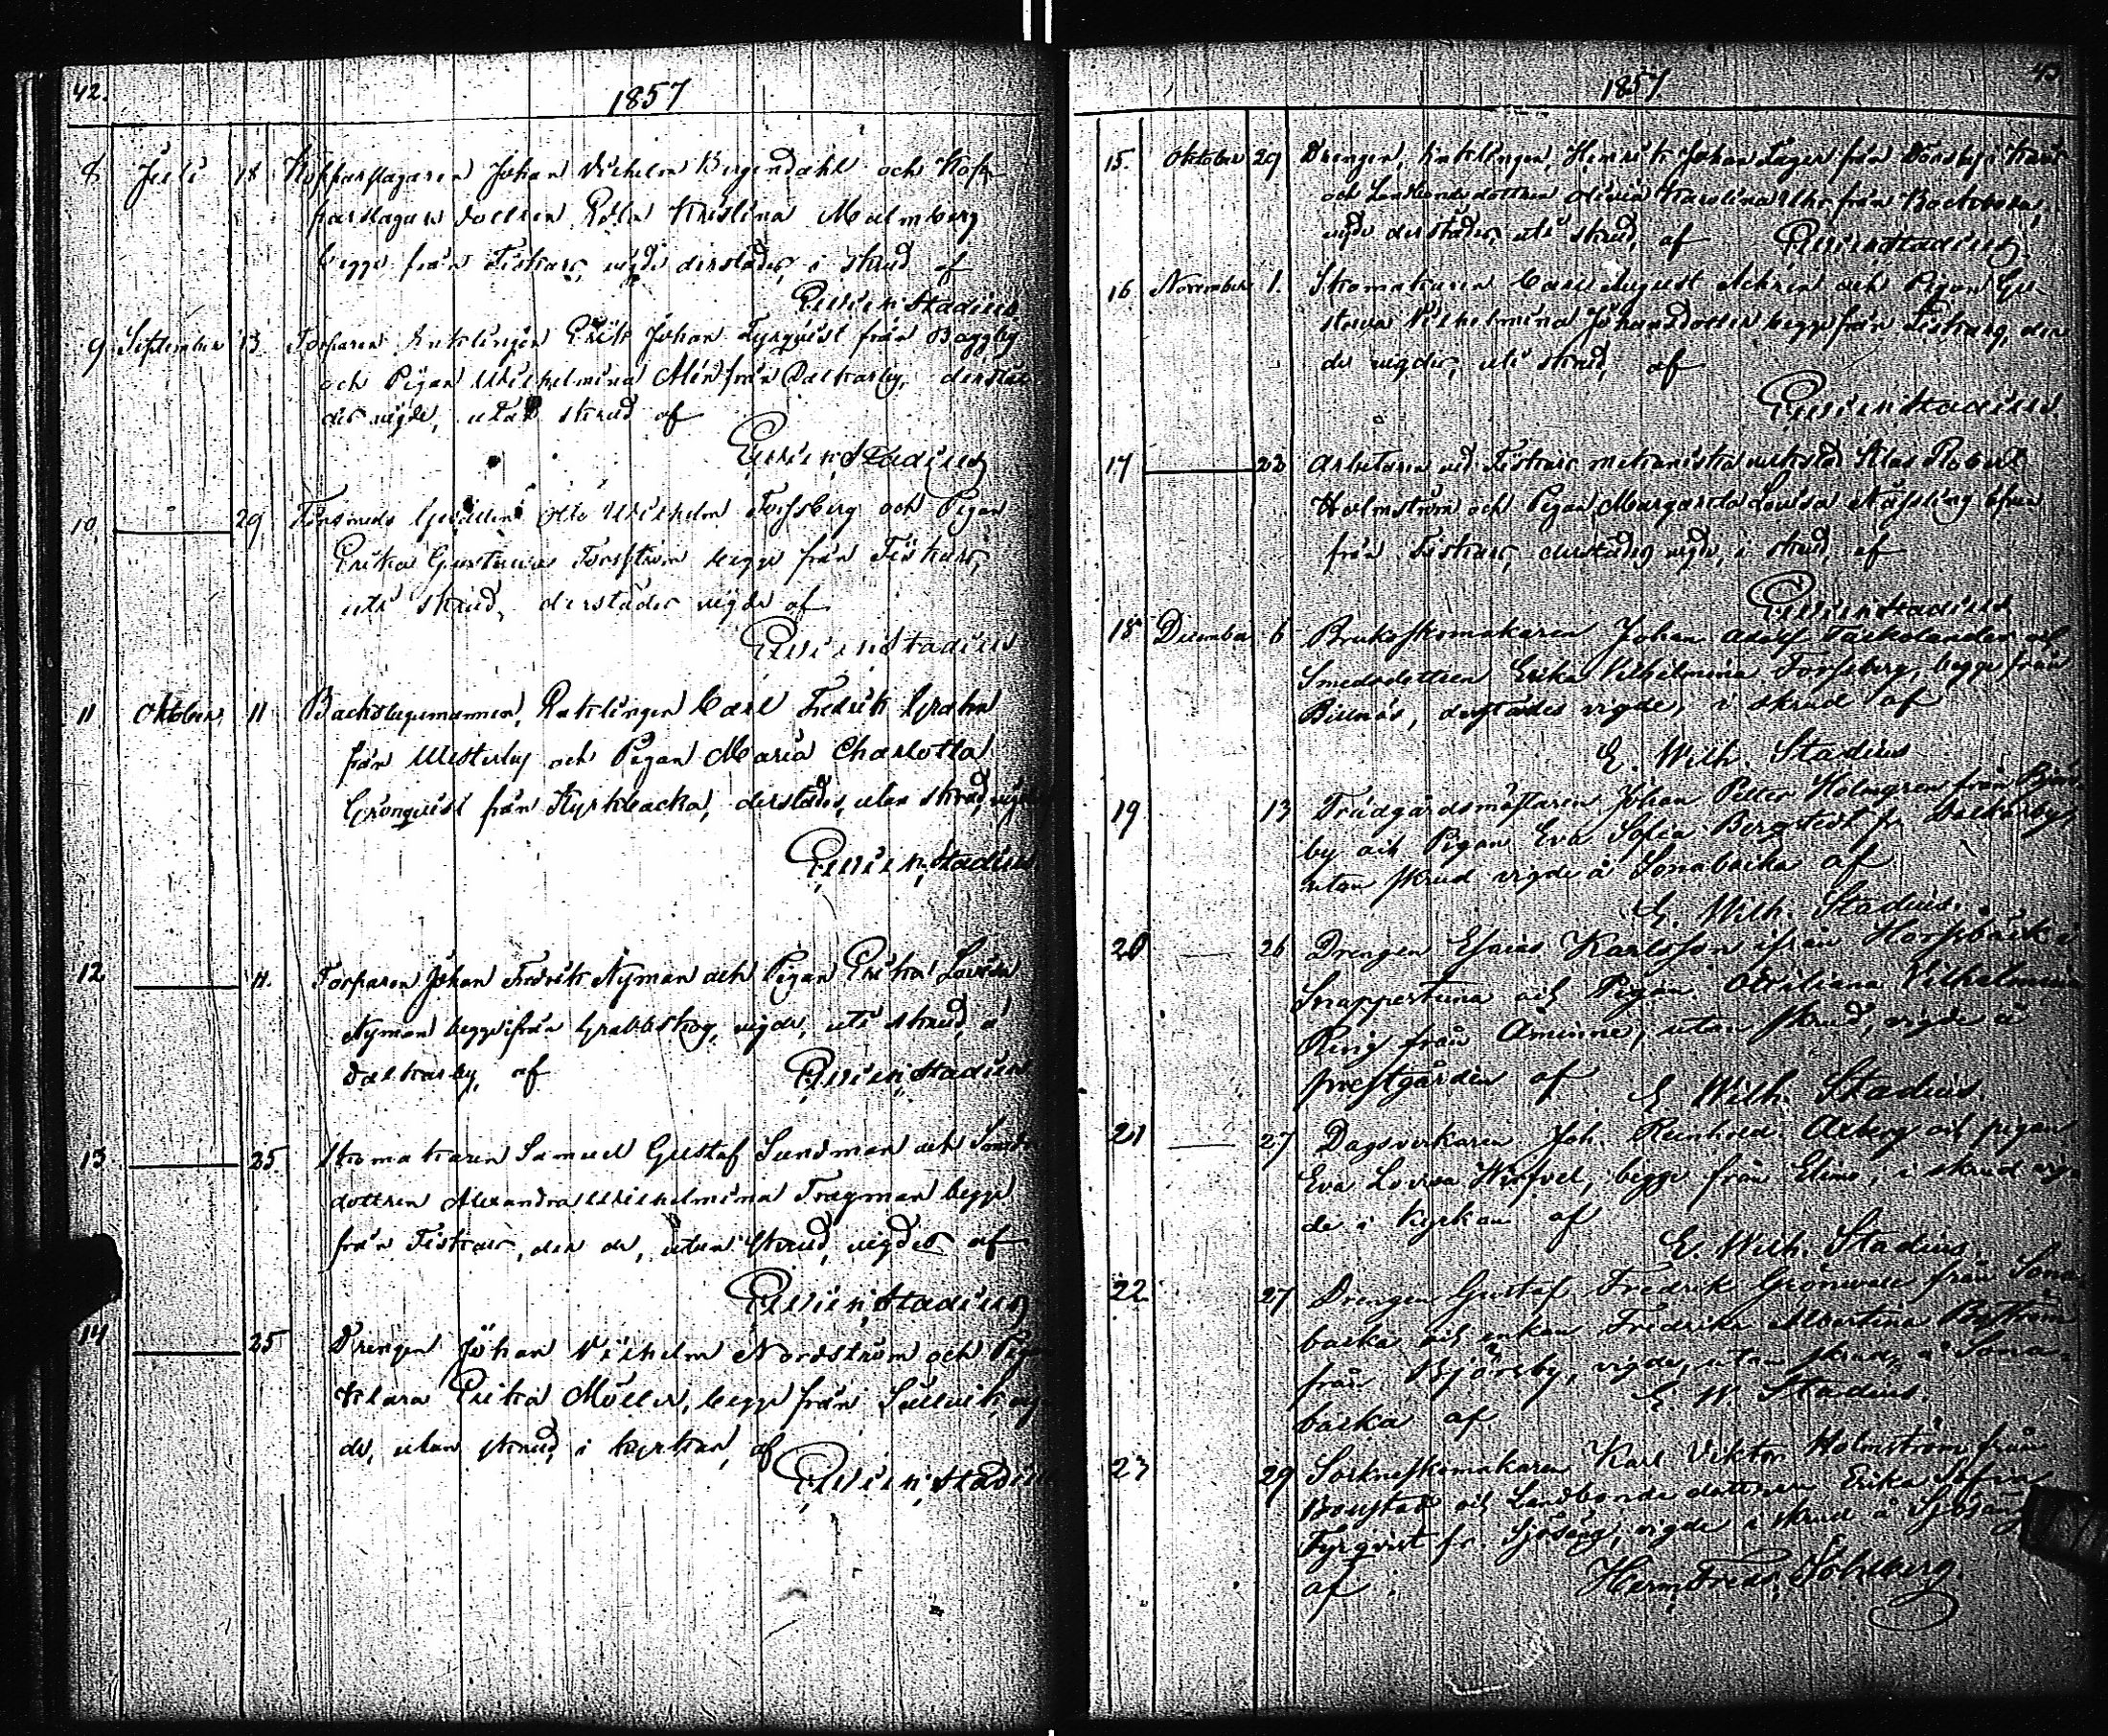 42.
1857
8 Juli 18 Kopparslagaren Johan Vilhelm Bergendahl och Kop-
parslagare dottren Kristina Malmberg
begge från Fiskars, vigde derstädes, i skrud af
Edvin Stadius
9 September 13 Torparen Enklingen Erik Johan Fyrqvist från Baggby
och Pigan Wilhelmina Alén från Dalkarby, derstä-
des vigde, utan skrud af
Edvin Stadius
10 29 Gesällen Otto Wilhelm Forssberg och Pigan
Erika Gustava Forsström begge från Fiskars,
uti skrud, derstädes vigde af
Edvin Stadius
11 Oktober 11 Backstugumannen, Enklingen Carl Fredrik Grahn
från Westerby och Pigan Maria Charlotta
Grönqvist från Kyrkbacka, derstädes, utan skrud, vigde
Edvin Stadius
12 11. Torparen Johan Fredrik Nyman och Pigan Erika Lovisa
Nyman begge ifrån Grabbskog, vigde, uti skrud, å
Dalkarby, af Edvin Stadius
13 25 Skomakaren Samuel Gustaf Sundman och Smeds-
dottren Alexandra Wilhelmina Trägman begge
från Fiskars, der de, utan skrud, vigdes af
Edvin Stadius
14 25 Drengen Johan Vilhelm Nordström och Pigan
Klara Erika Möller, begge från Sällvik, vig-
de, utan skrud, i kyrkan, af
Edvin Stadius
1857.
43.
15. Oktober 29 Drengen, Enklingen, Henrik Johan Lager från i Karis
och Landbondedottren Olivia Karolina från Backboda,
vigde derstädes, uti skrud, af Edvin Stadius
16 November 1. Skomakaren Carl August och Pigan Gu-
stava Vilhelmina Johansdotter begge från Fiskars, der
de vigdes, uti skrud, af
Edvin Stadius
17 22 Arbetaren vid Fiskars mekaniska verkstad Klas Robert
Holmström och Pigan Margareta Lovisa Nässling
från Fiskars, derstädes vigde, i skrud, af
Edvin Stadius
18 December 6 Bruksskomakaren Johan Adolf Tackolander och
Smedsdottren Erika Vilhelmina Forssberg, begge från
Billnäs, derstädes vigde, i skrud af
E. Wilh. Stadius
19 13 Trädgårdsmästaren Johan Petter Holmgren från Björs-
by och Pigan Eva Sofia Bergstedt fr. Dalkarby,
utan skrud vigde å Sonabacka af
E. Wilh. Stadius.
20 26 Drengen Esaias Karlsson ifrån Horsbäck i
Snappertuna och Pigan Vilhelmina
Ring från Åminne, utan skrud, vigde å
prestgården af E Wilh. Stadius.
21 27 Dagsverkaren Joh. Reinhold Axberg och pigan
Eva Lovisa Wirfvel, begge från Elimo, i skrud vig-
de i Kyrkan af
E. Wilh. Stadius.
22 27 Drengen Gustaf Fredrik Grönwall från Sona-
backa och enkan Fredrika Albertina Byström
från Björsby, vigde, utan skrud, å Sona-
backa af E. W. Stadius.
23 29 Sockneskomakaren Karl Viktor Holmström från
Bonstad och Landbonde dottren Erika Sofia
Fyrqvist fr. Sjösäng, vigde i skrud å Sjösäng
af Herm. Fredr. Sohlberg.